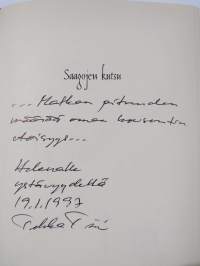 Saagojen kutsu
... Matkan pituuden
määrää oman horisontin
etäisyys...
Helenalle
ystävyydellä
19.1.1997